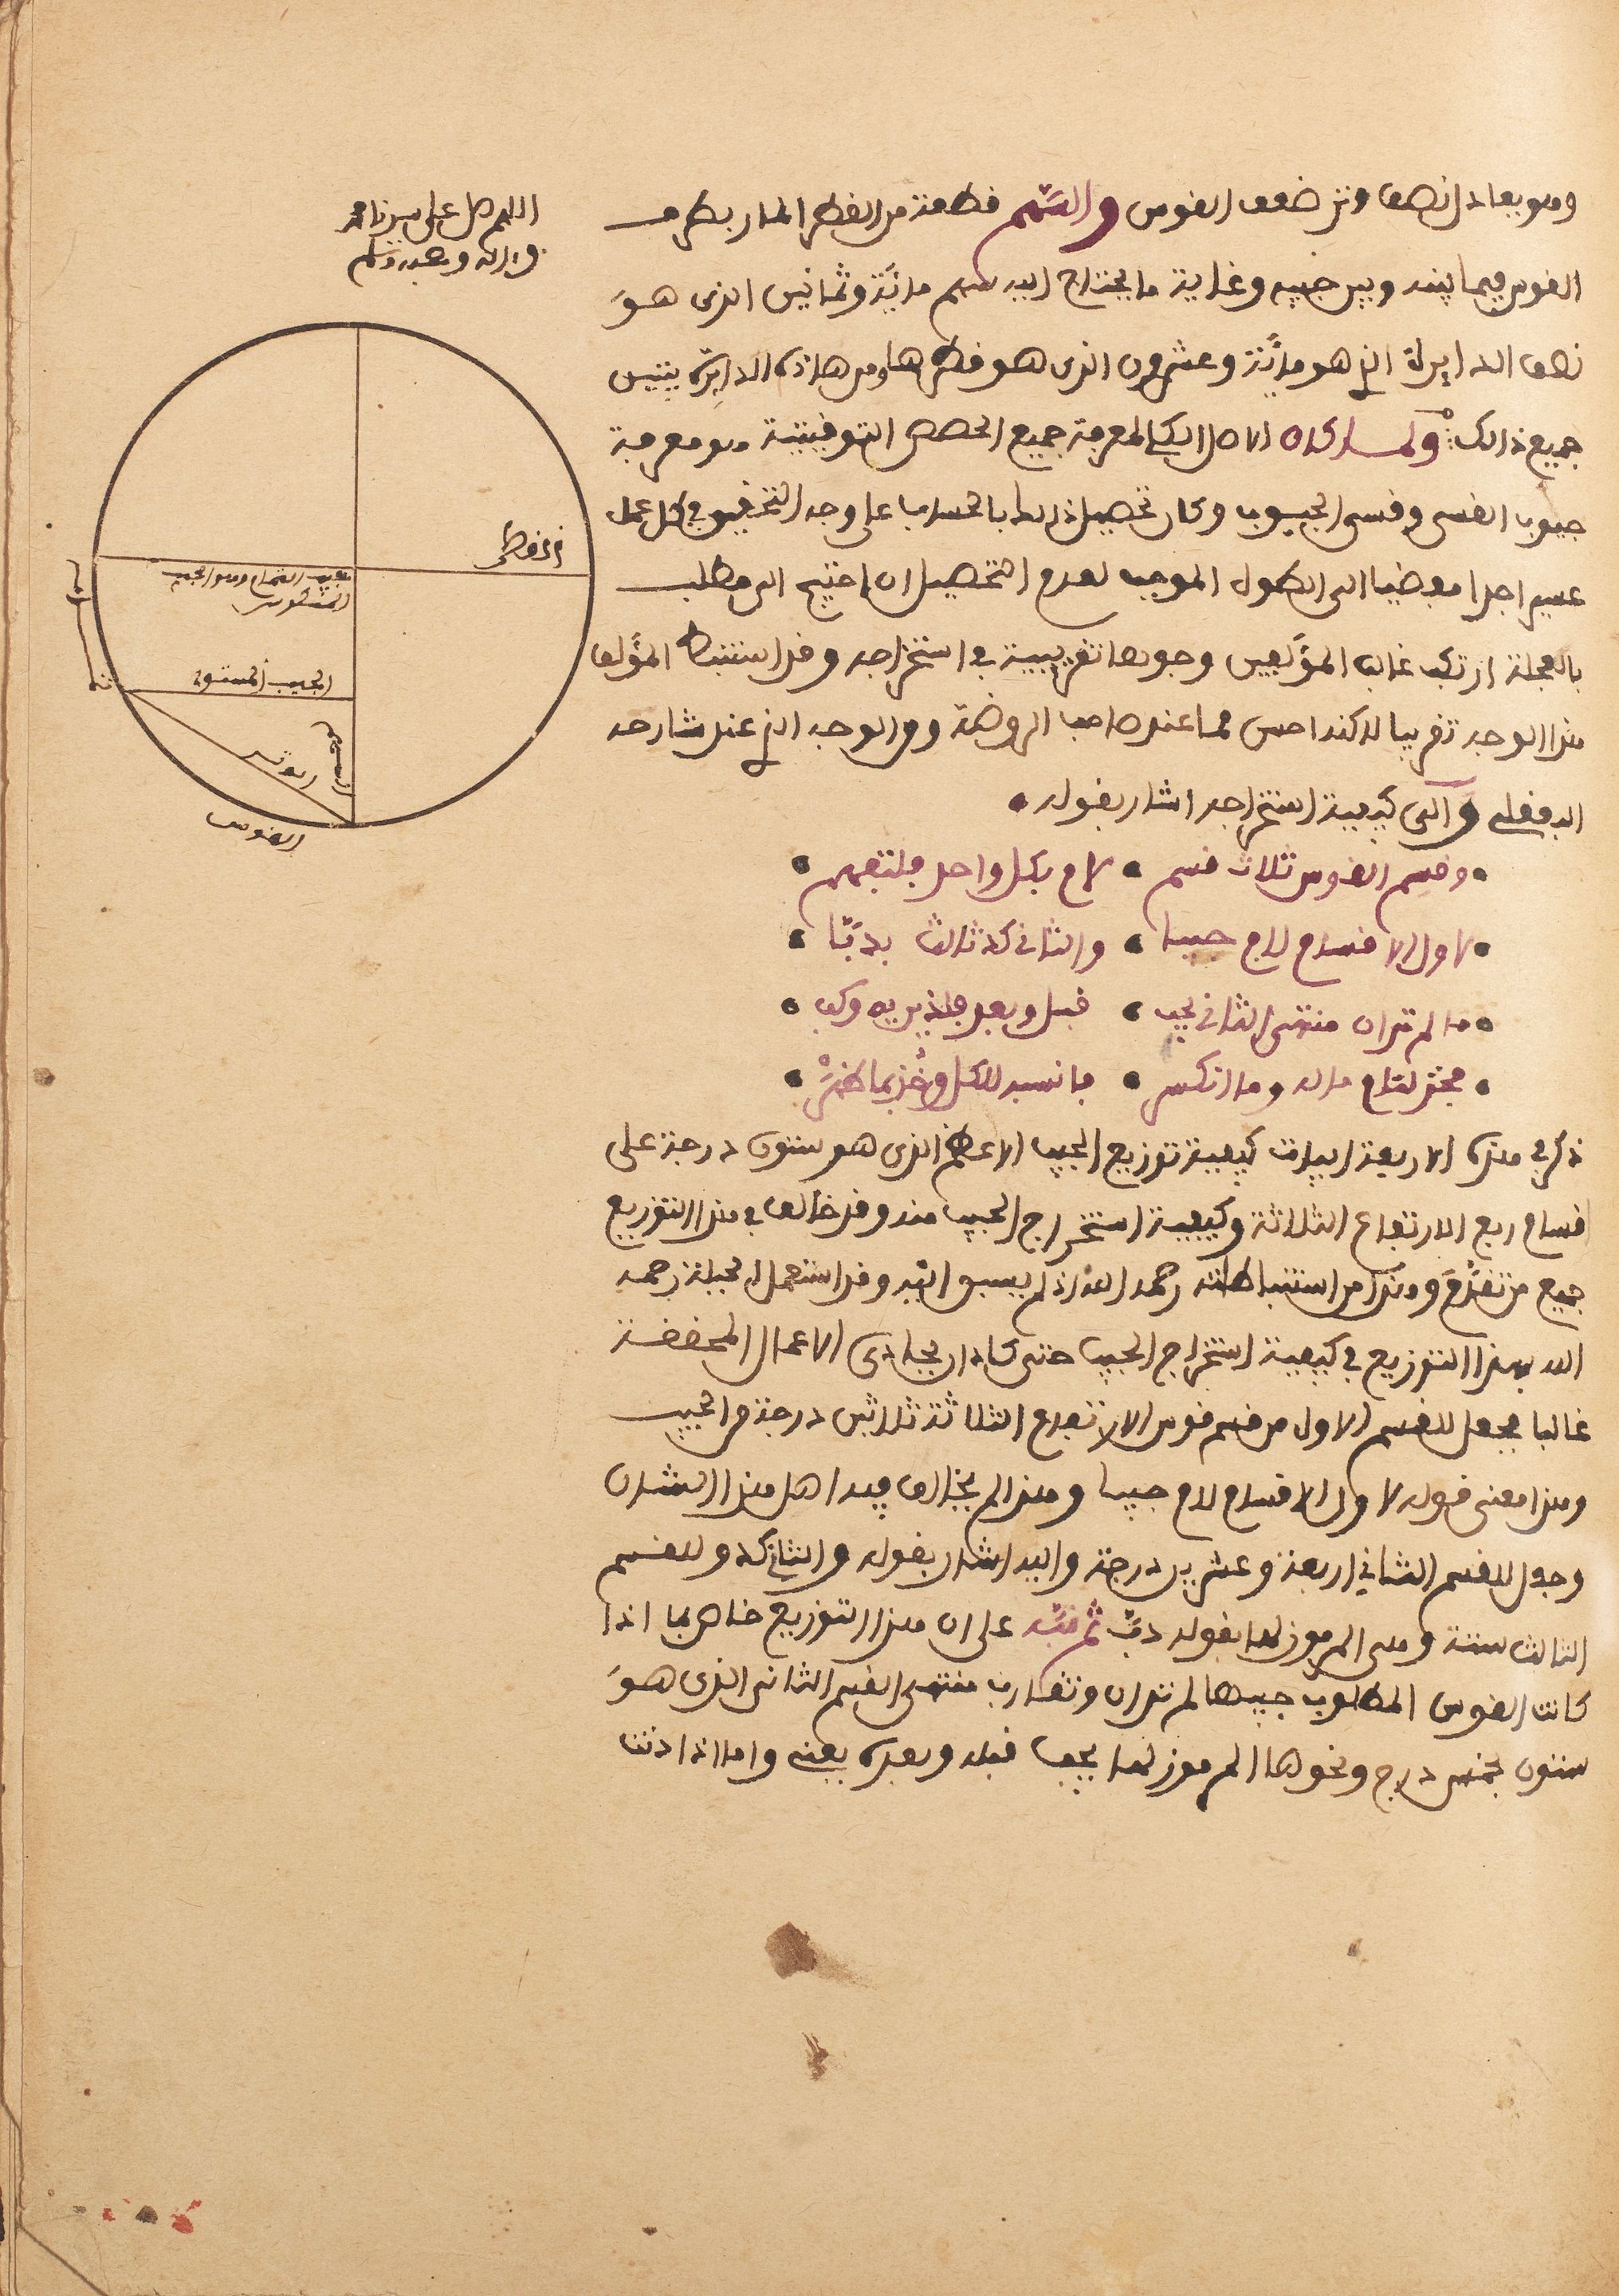 وهو يعادل نصف وتر ضعف القوس والسهم قطعة من القطر المار بطرف
القوس فيما بينه وبين جيبه وغاية ما يحتاج اليه سهم مائة وثمانين الذى هو
نصف الدايرة الذى هو مائة وعشرون الذى هو قطرها ومن هاذه الدائرة يتبين
جميع ذالك ولما كان الاصل الكلي لمعرفة جميع الحصص التوقيتية هو معرفة
جيوب القسى وقسى الجيوب وكان تحصيل ذالك بالحساب على وجه التحقيق في كل عمل
عسير اجدا مفضيا الى الطول الموجب لعدم التحصيل ان احتيج الى مطلب
بالعجلة ارتكب غالب المؤلفين وجوها تقريبية في استخراجه وقد استنبط المؤلف
هذا الوجه تقريبا لاكنه احسن مما عند صاحب الروضة ومن الوجه الذي عند شارحه
والى كيفية استخراجه اشار بقوله
وقسم القوس ثلاث قسم لام بكل واحد فلتفهم
لاول الاقسام لام جيبا والثانى كد ثالث بدبا
ما لم تدان منتهى الثانى بجيب قبل وبعد
فخذ لتام ماله وما انكسر فانسبه للكل وخذ بما ظهر
ذكر في هذه الاربعة ابيات كيفية توزيع الجيب الاعظم الذى هو ستون درجة على
اقسام ربع الارتفاع الثلاثة وكيفية استخراج الجيب منه وقد خالف في هذا التوزيع
جميع من تقدم وهذا من استنباطاته رحمه الله اذ لم يسبق اليه وقد استعمل رحمه
الله بهذا التوزيع في كيفية استخراج الجيب حتى كاد ان يحاذى الاعمال المحققة
غالبا فجعل للقسم الاول من قسم قوس الارتفاع الثلاثة ثلاثين درجة من الجيب
وهذا معنى قوله لاول الاقسام لام جيبا وهذا لم يخالف فيه اهل هذا الشان
وجعل للقسم الثاني اربعة وعشرين درجة واليه اشار بقوله والثاني كد وللقسم
الثالث ستة وهى المرموز لها بقوله ثم نبه على ان هذا التوزيع خاص بما اذا
كانت القوس المطلوب جيبها لم تدان وتقارب منتهى القسم الثانى الذى هو
ستون بخمس درج ونحوها المرموز لها بجيب قبله وبعده يعنى واما اذا دنت
اللهم صل على سيدنا محمد
وءاله وصحبه وسلم
القطر
جيب التمام وهو الجيب
المنكوس
الجيب المستوى
السهم
الوتر
القوس